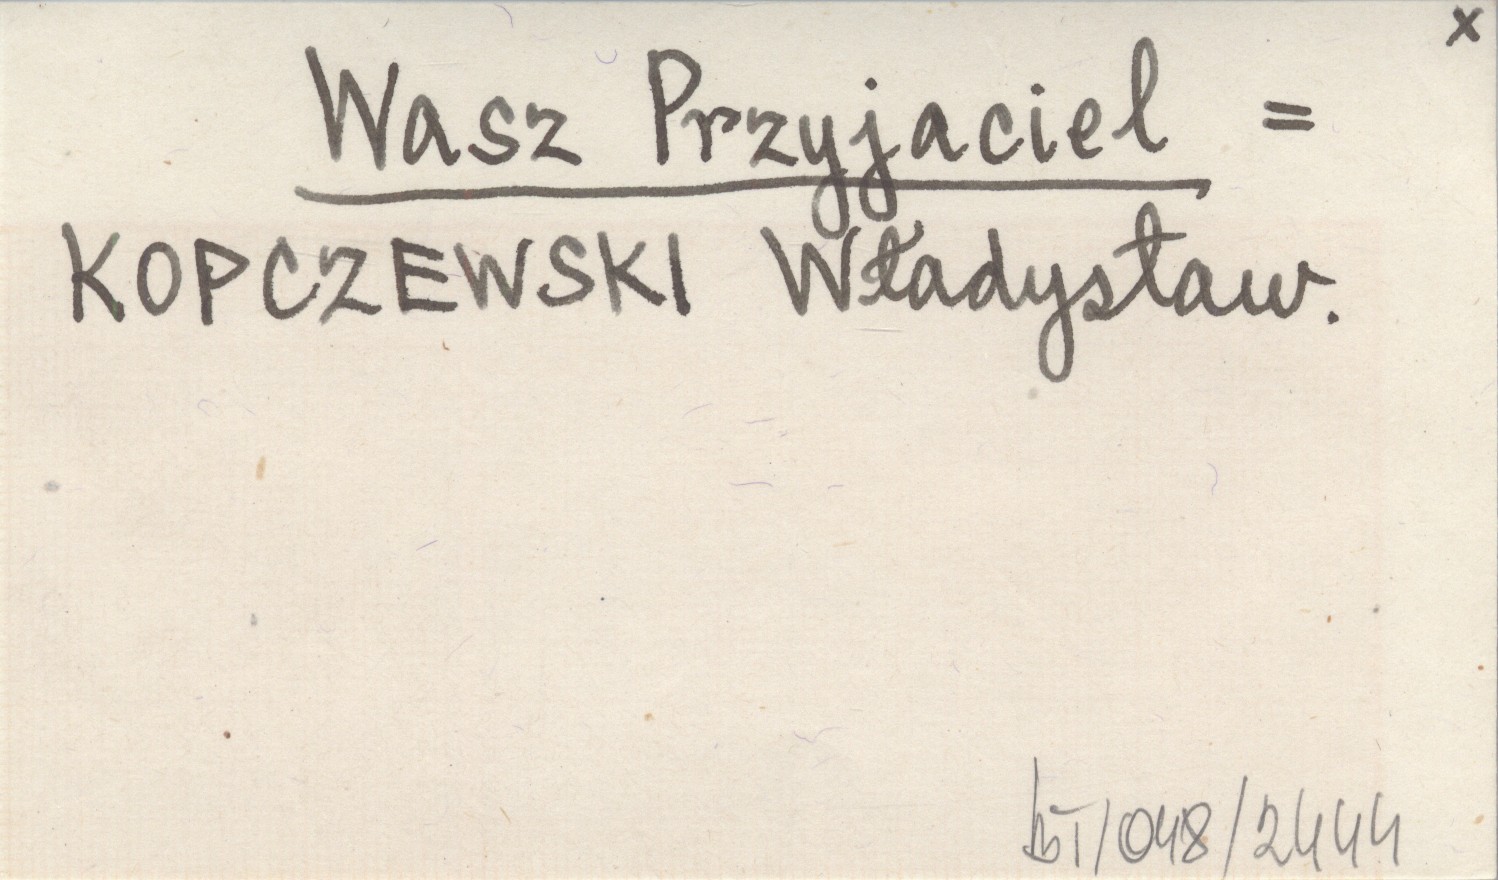 x
Wasz Przyjaciel =
KOPCZEWSKI Władysław.
/048/2444